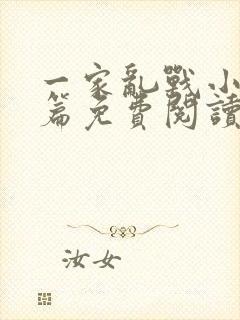 一家亂戰小
篇免費閱讀
汝女